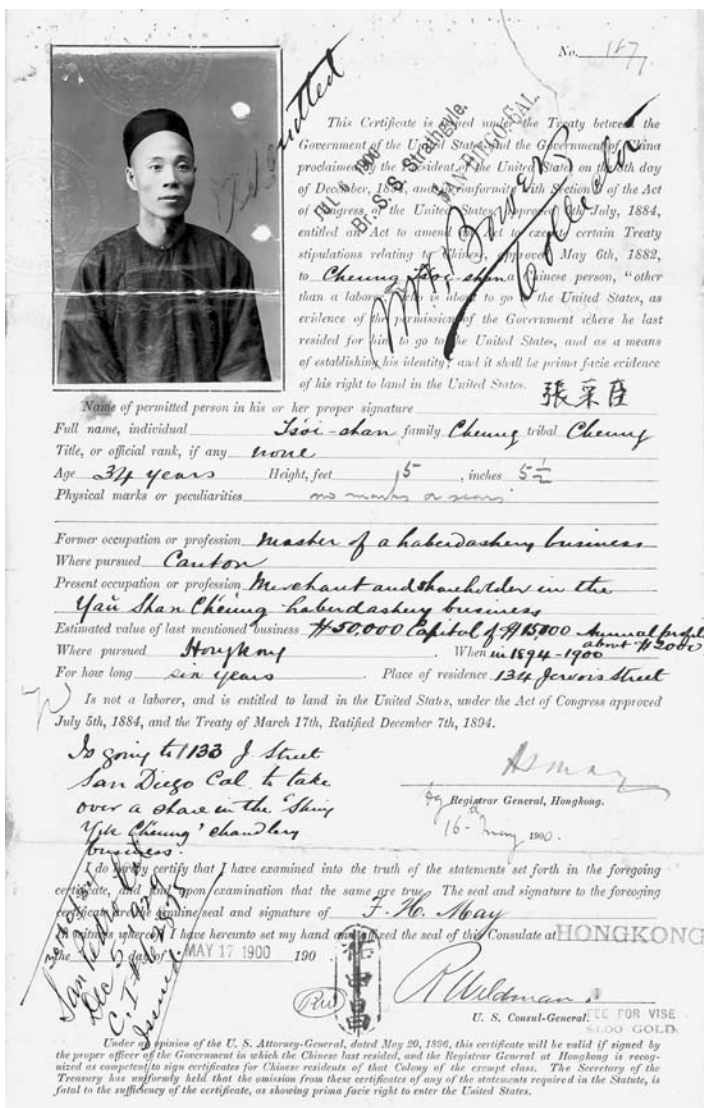 No. 187
Admitted
JUL 6 1900
Br. S. S. Strathgyle.
SAN DIEGO, CAL.
W. W. Bowers
Collector
This Certificate is issued under the Treaty between the
Government of the United States and the Government of China
proclaimed by the President of the United States on the 8th day
of December, 1894, and in conformity with Section 6 of the Act
of Congress of the United States, approved 5th July, 1884,
entitled an Act to amend an Act to execute certain Treaty
stipulations relating to Chinese, approved May 6th, 1882,
to Cheung Tsoi-shan a Chinese person, "other
than a laborer, who is about to go to the United States, as
evidence of the permission of the Government where he last
resided for him to go to the United States, and as a means
of establishing his identity; and it shall be prima facie evidence
of his right to land in the United States.
Name of permitted person in his or her proper signature 張采臣
Full name, individual Tsoi-shan family Cheung tribal Cheung
Title, or official rank, if any none
Age 34 years Height, feet 5 , inches 5½
Physical marks or peculiarities no marks or scars
Former occupation or profession Master of a haberdashery business
Where pursued Canton
Present occupation or profession Merchant and shareholder in the
Yau Shan Cheung haberdashery business
Estimated value of last mentioned business $50,000 Capital of $15000 Annual profit
about $2000
Where pursued Hongkong . When in 1894-1900
For how long six years Place of residence 134 Jervois Street
Is not a laborer, and is entitled to land in the United States, under the Act of Congress approved
July 5th, 1884, and the Treaty of March 17th, Ratified December 7th, 1894.
Is going to 1133 J. Street
San Diego Cal. to take
over a share in the "Shing
Yik Cheung" chandlery
business.
Registrar General, Hongkong.
16 May 1900.
I do hereby certify that I have examined into the truth of the statements set forth in the foregoing
certificate, and find upon examination that the same are true. The seal and signature to the foregoing
certificate are the genuine seal and signature of F. H. May
In witness whereof I have hereunto set my hand and affixed the seal of this Consulate at HONGKONG
the day of MAY 17 1900 190
San Pedro
Dec 5
C. I.
Issued
RW
R Wildman.
U. S. Consul-General.
FEE FOR VISE
$1.00 GOLD.
Under an opinion of the U. S. Attorney-General, dated May 20, 1896, this certificate will be valid if signed by
the proper officer of the Government in which the Chinese last resided, and the Registrar General at Hongkong is recog-
nized as competent to sign certificates for Chinese residents of that Colony of the exempt class. The Secretary of the
Treasury has uniformly held that the omission from these certificates of any of the statements required in the Statute, is
fatal to the sufficiency of the certificate, as showing prima facie right to enter the United States.